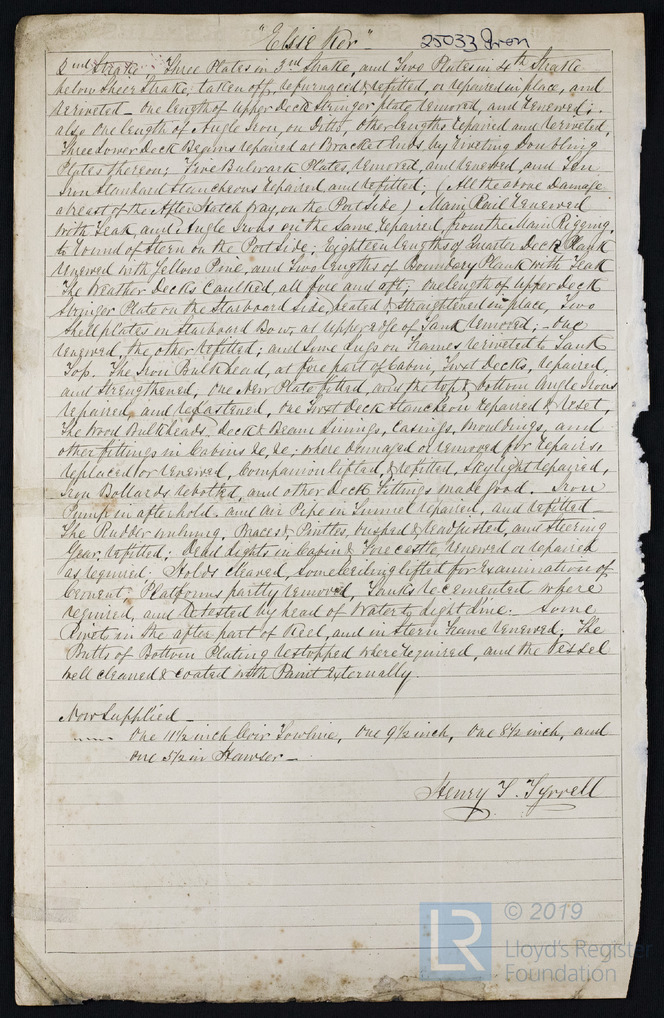 "Elsie Ker" 25033 Iron
2nd Strake: Three Plates in 3rd Strake, and Two Plates in 4th Strake
below Sheer Strake; taken off, refurnaced & refitted, or repaired in place, and
reriveted - One length of upper Deck Stringer plate removed, and renewed;
also One length of Angle Iron, on Ditto, other lengths repaired and reriveted,
Three Lower Deck Beams repaired at Bracket Ends by riveting Doubling
Plates thereon; Five Bulwark Plates, removed, and renewed, and Ten
Iron Standard Stancheons repaired, and refitted; (All the above Damage
abreast of the After Hatch way, on the Port Side) Main Rail renewed
with Teak, and Angle Irons on the same repaired, from the Main Rigging,
to round of Stern on the Port Side; Eighteen lengths of Quarter Deck Plank
renewed with Yellow Pine, and Two lengths of Boundary Plank with Teak
The Weather Decks Caulked, all fore and aft; One length of upper Deck
Stringer Plate on the Starboard side, heated & straightened in place, Two
Shell plates on Starboard Bow, at upper edge of Tank removed; - One
renewed, the other refitted; and some Lugs on Frames reriveted to Tank
Top. The Iron Bulkhead, at fore part of Cabin, Twixt Decks, repaired,
and Strengthened, One New Plate fitted, and the top & bottom Angle Irons
repaired, and refastened, One Twixt Deck Stancheon repaired & reset,
The Wood Bulkheads, Deck & Beam Linings, Casings, Mouldings, and
other fittings in Cabins &c, &c; where damaged or removed for repairs,
replaced or renewed, Companion lifted, & refitted, Skylight repaired,
Iron Bollards rebolted, and other Deck fittings made good. Iron
Pump in afterhold, and air Pipe in Tunnel repaired, and refitted -
The Rudder unhung, Braces &, Pintles, bushed & readjusted, and Steering
Gear, refitted; Dead Lights in Cabin & Forecastle, renewed or repaired
as required: Holds cleared, some Ceiling lifted for Examination of
Cement: Platforms partly removed, Tanks recemented where
required, and retested by head of Water to Light Line: Some
Rivets in the after part of Keel, and in Stern Frame renewed; The
Butts of Bottom Plating restopped where required, and the Vessel
well cleaned & coated with Paint externally.
Now Supplied -
One 11½ inch Coir Towline, One 9½ inch, One 8½ inch, and
One 5½ in Hawser -
Henry T. Tyrrell
LR
© 2019
Lloyd's Register
Foundation